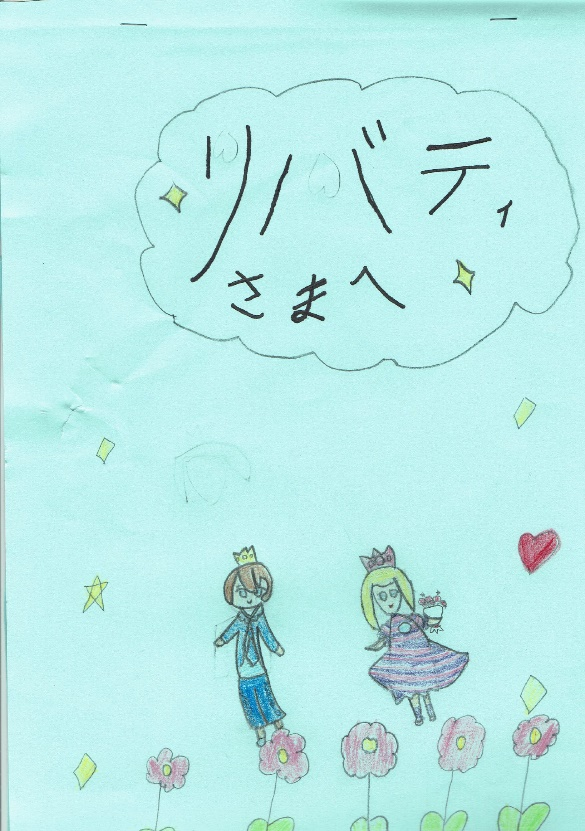 リバティ
さまへ